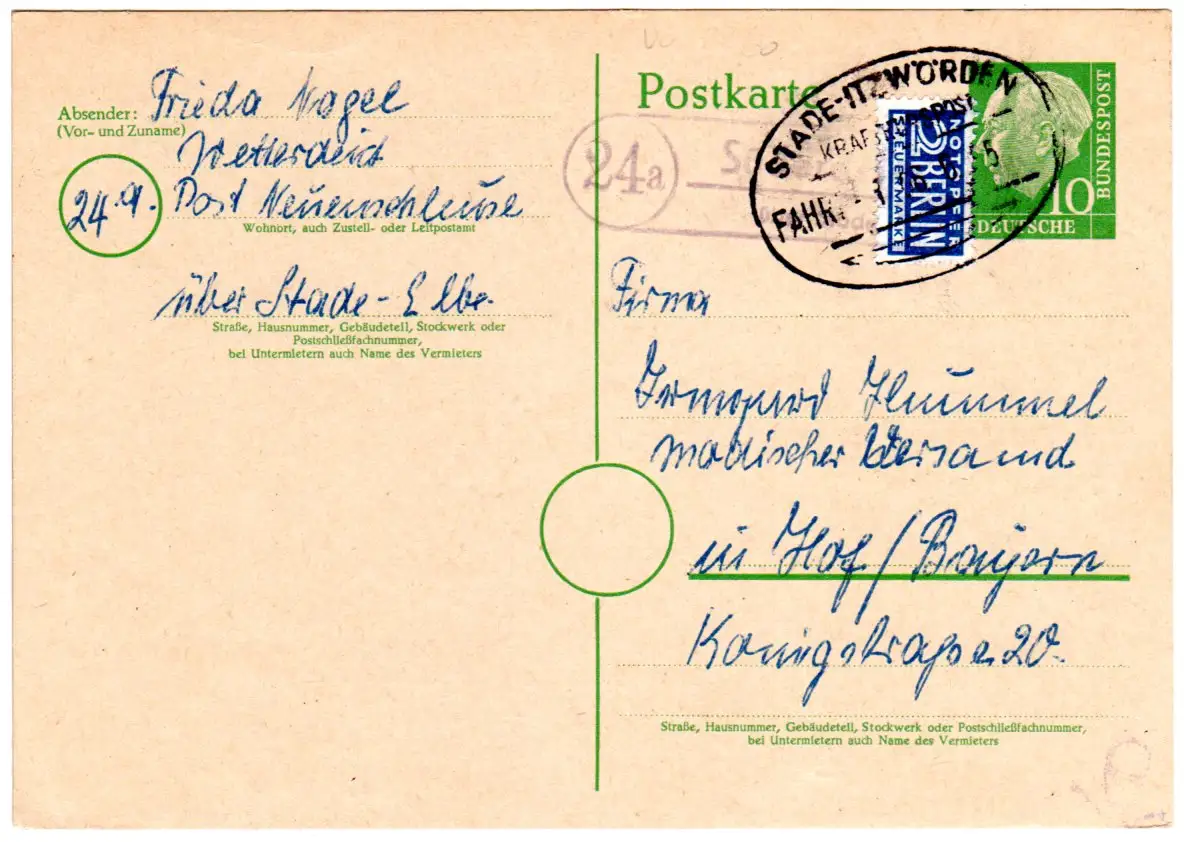 Absender: Frieda Nagel
(Vor- und Zuname)
Wetterdeich
24a. Post Neuenschleuse
Wohnort, auch Zustell- oder Leitpostamt
über Stade-Elbe.
Straße, Hausnummer, Gebäudeteil, Stockwerk oder
Postschließfachnummer,
bei Untermietern auch Name des Vermieters
Postkarte
24a
STADE-ITZWÖRDEN
KRAFTFAHRPOST
FAHRT
NOTOPFER
2 BERLIN
STEUERMARKE
10
DEUTSCHE
BUNDESPOST
Firma
Irmgard Hummel
Modischer Versand
in Hof/Bayern
Königstraße 20.
Straße, Hausnummer, Gebäudeteil, Stockwerk oder Postschließfachnummer,
bei Untermietern auch Name des Vermieters